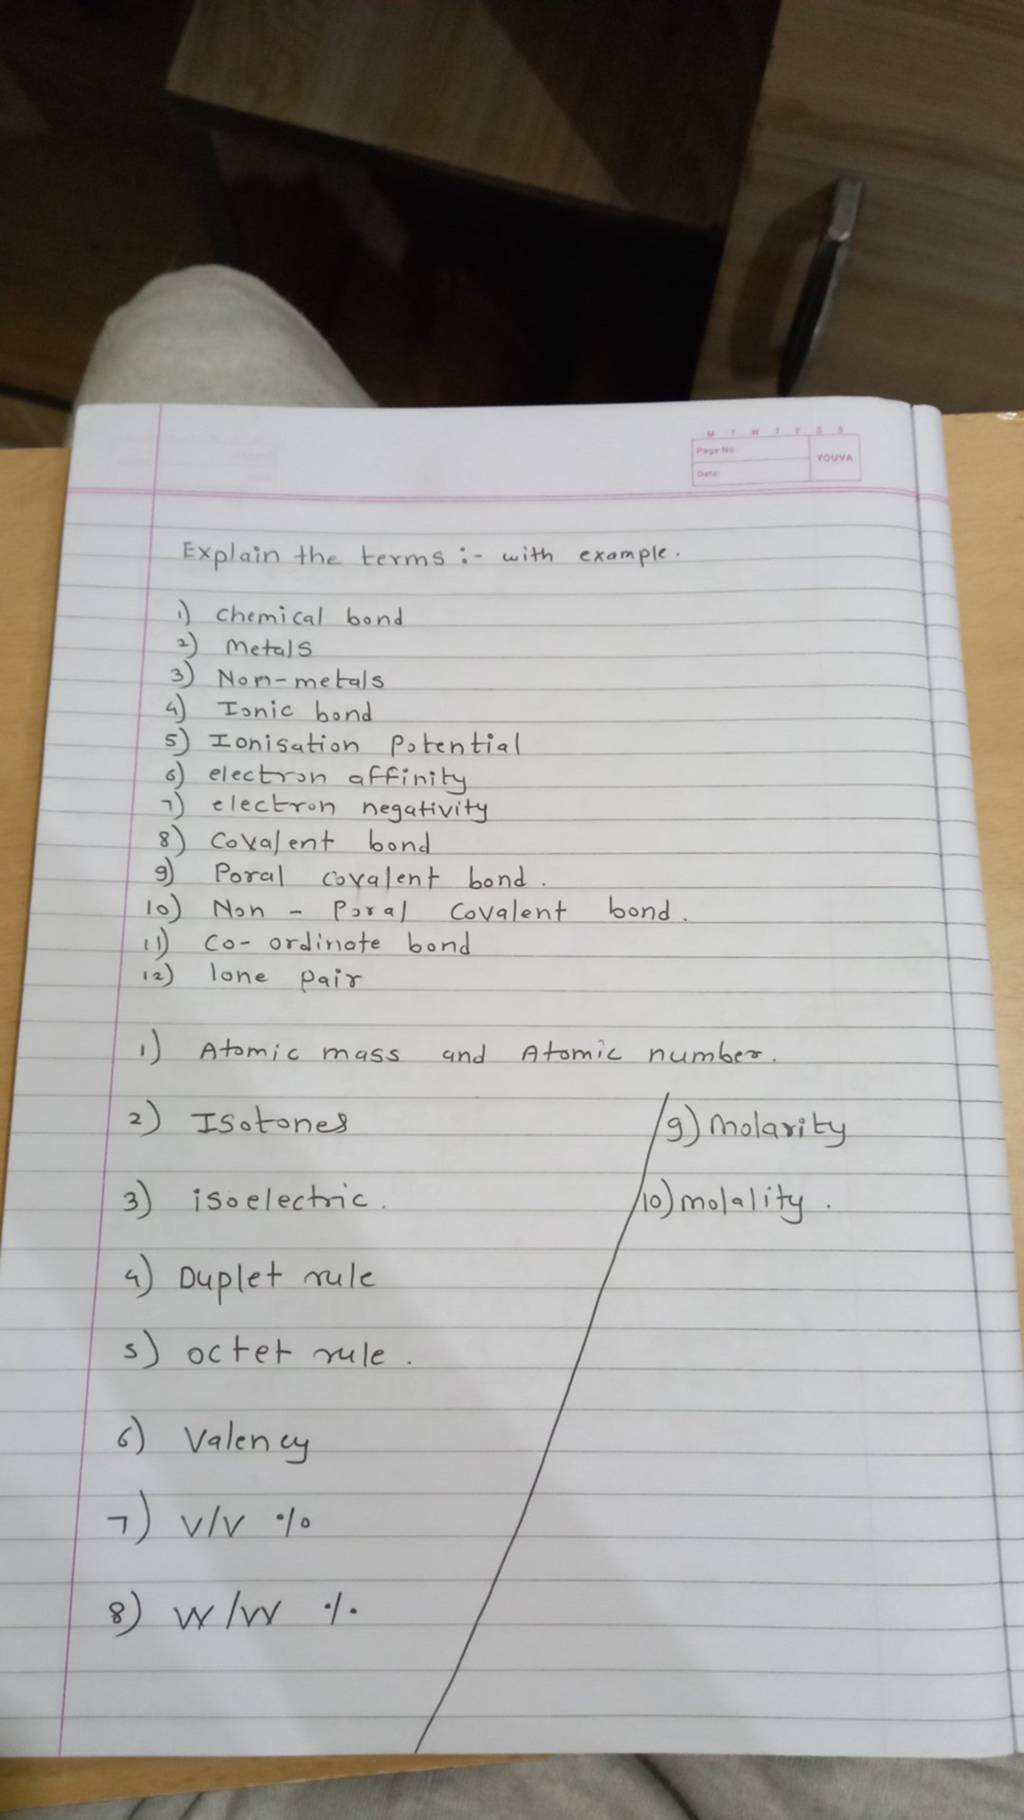 M T W T F S S
Page No.
YOUVA
Date:
Explain the terms :- with example.
1) Chemical bond
2) Metals
3) Non-metals
4) Ionic bond
5) Ionisation Potential
6) electron affinity
7) electron negativity
8) Covalent bond
9) Poral covalent bond.
10) Non - Poral Covalent bond.
11) Co-ordinate bond
12) lone pair
1) Atomic mass and Atomic number.
2) Isotones
9) Molarity
3) isoelectric.
10) molality.
4) Duplet rule
5) octet rule.
6) Valency
7) V/V %
8) W/W %